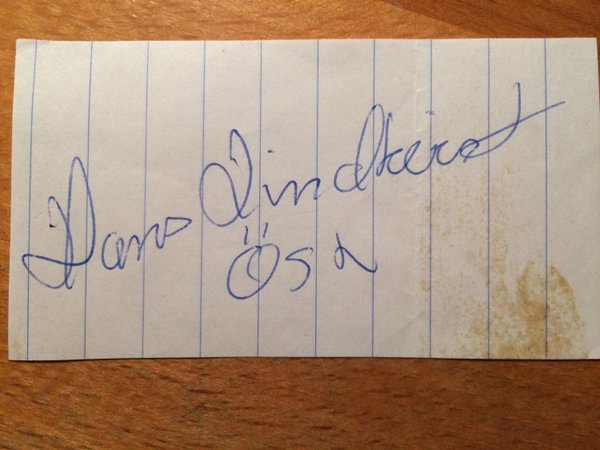 Hans Lindkvist
ÖSK